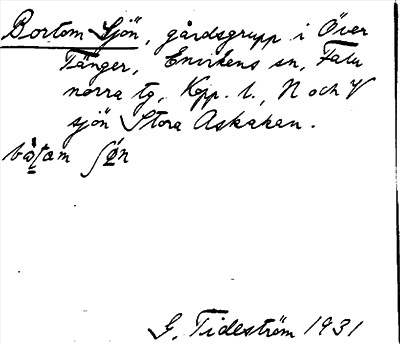 Bortom Sjön, gårdsgrupp i Över
Tänger, Envikens sn, Falu
norra tg, Kopp. l., N och V
sjön Stora Askaken.
G. Tideström 1931